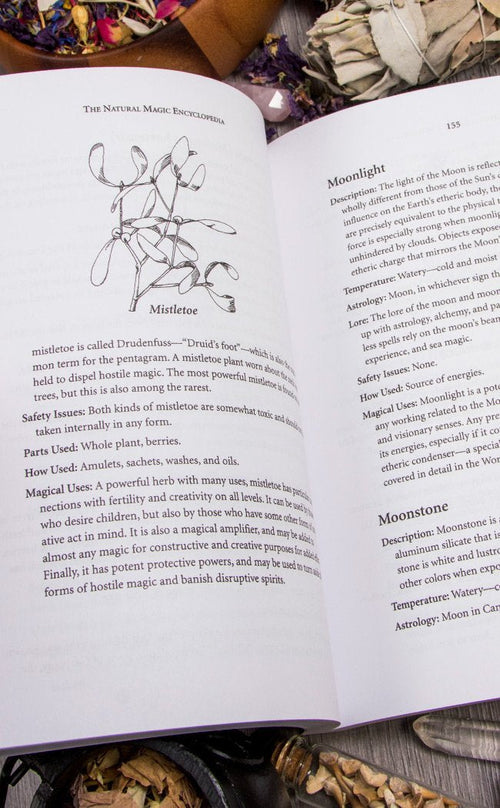 THE NATURAL MAGIC ENCYCLOPEDIA
Mistletoe
mistletoe is called Drudenfuss—“Druid’s foot”—which is also
mon term for the pentagram. A mistletoe plant worn about the
held to dispel hostile magic. The most powerful mistletoe is found
trees, but this is also among the rarest.
Safety Issues: Both kinds of mistletoe are somewhat toxic and should
taken internally in any form.
Parts Used: Whole plant, berries.
How Used: Amulets, sachets, washes, and oils.
Magical Uses: A powerful herb with many uses, mistletoe has
nections with fertility and creativity on all levels. It can be used
who desire children, but also by those who have some other
ative act in mind. It is also a magical amplifier, and may be added
almost any magic for constructive and creative purposes for
Finally, it has potent protective powers, and may be used to turn
forms of hostile magic and banish disruptive spirits.
155
Moonlight
Description: The light of the Moon is
wholly different from those of the Sun’s
influence on the Earth’s etheric body,
are precisely equivalent to the physical
force is especially strong when
unhindered by clouds. Objects
etheric charge that mirrors the
Temperature: Watery—cold and moist
Astrology: Moon, in whichever sign
Lore: The lore of the moon and
up with astrology, alchemy, and
less spells rely on the moon’s
experience, and sea magic.
Safety Issues: None.
How Used: Source of energies.
Magical Uses: Moonlight is a
any working related to the
and visionary senses. Any
its energies, especially if it
etheric condenser—a
covered in detail in the
Moonstone
Description: Moonstone is
aluminum silicate that is
stone is white and
other colors when
Temperature:
Astrology: Moon in